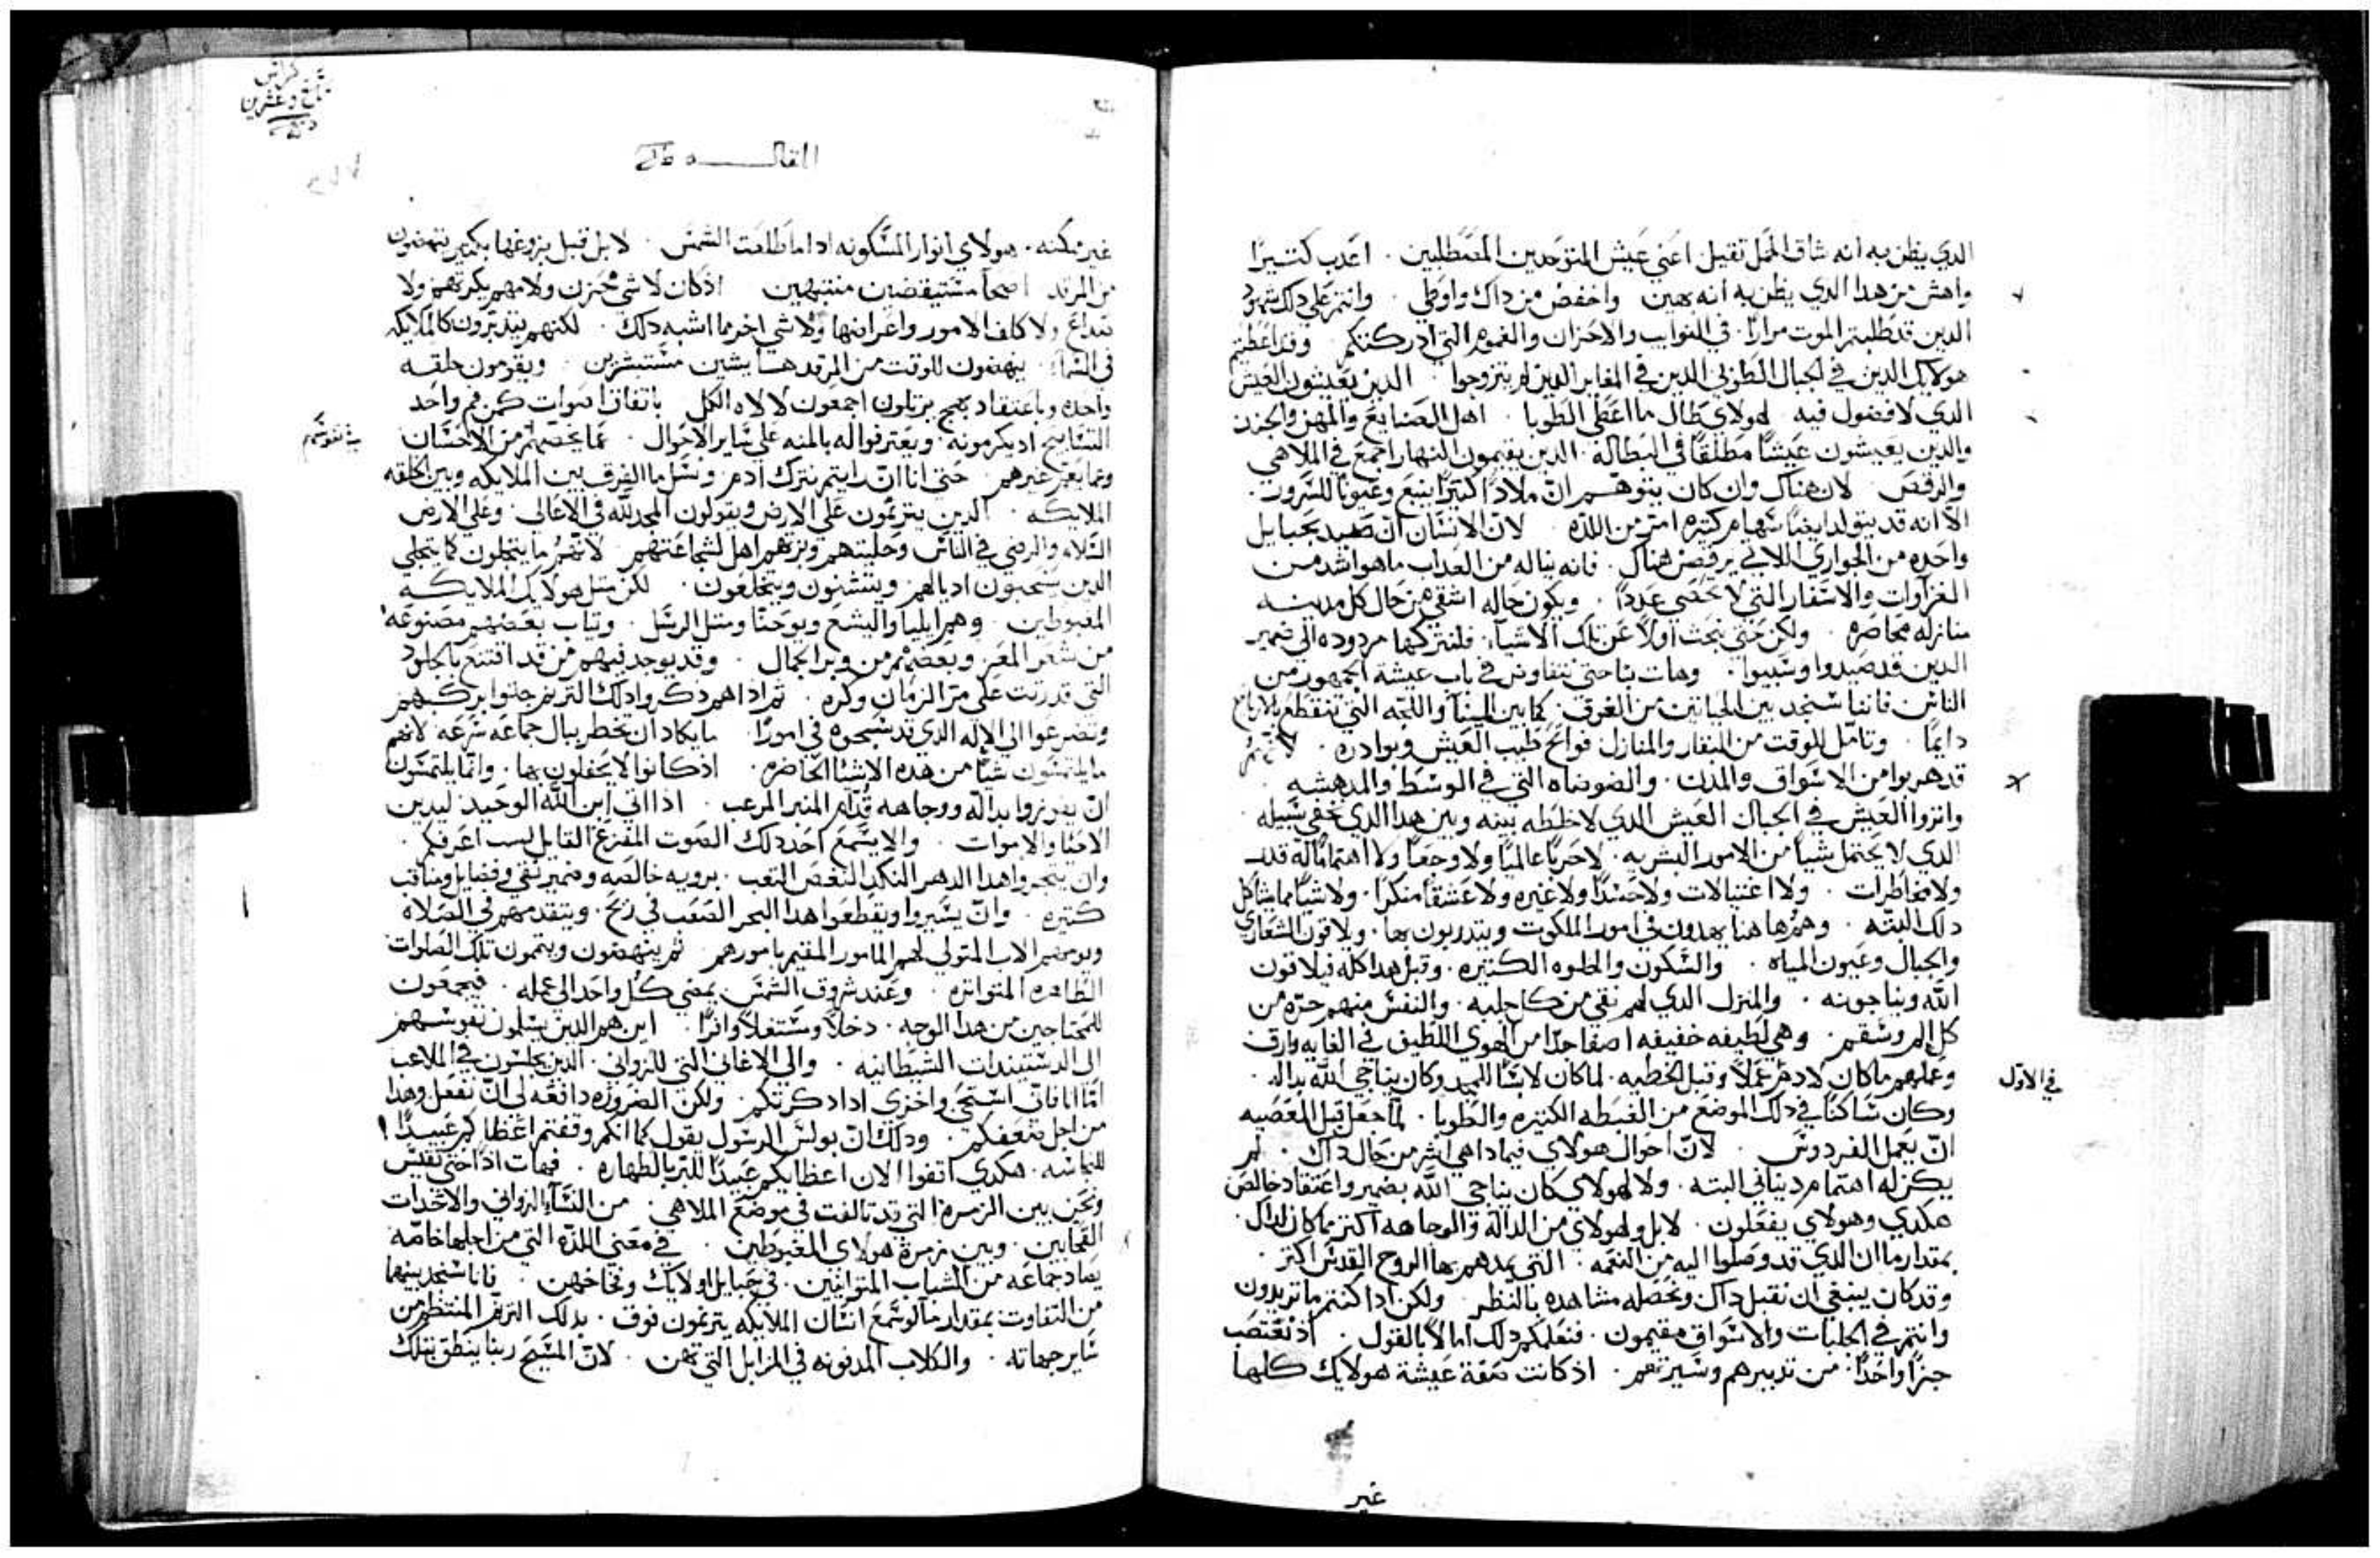 الدي يظن به انه شاق الحمل تقيل اعني عيش المتوحدين . اعدب كتيرًا
واهش من هدا الدي يظن به انه هين واخفض من داك واوطي . وانتم علي دلك شهود
الدين قد طلبتم الموت مرارًا . في النوايب والاحزان والغموم التي ادركتكم . وقد اعطيتم
هولايك الدين في الجبال الطوبي الدين في المغاير الدين لم يتزوجوا . الدين يعيشون العيش
الدي لا فضول فيه لهولاي طال ما اعطي الطوبا . اهل الصنايع والمهن والحزن
والدين يعيشون عيشًا مطلقًا في البطاله . الدين يقيمون النهار اجمع في الملاهي
والرقص . لان هناك وان كان يتوهم انّ ملادًا كتيرًا ينبع وعيونًا للسرور .
الا انه قد يتولد ايضًا سهام كتيره امرّ من اللده . لانّ الانسان انّ صيد بحبايل
واحده من الجواري اللاتي يرقصن هناك . فانه يناله من العداب ما هو اشد من
الغزاوات والاسفار التي لا تحصي عددًا . ويكون حاله اشقي من حال كل مدينه
منازله محاصره . ولكن حتي نبحث اولًا عن تلك الاشيآء . فلنتركها مردوده الي ضمير
الدين قد صيدوا وسبيوا . وهات بنا حتي نتفاوض في باب عيشة الجمهور من
الناس فاننا سنجد بين الحياتين من الفرق كما بين المينآ واللجه التي تتقطع بالارياح
دايمًا . وتامّل للوقت من النقار والمنازل فواتح طيب العيش وبوادره . لانهم
قد هربوا من الاسواق والمدن . والضوضاه التي في الوسط والمدهشه .
واتروا العيش في الجبال العيش الدي لا خلطه بينه وبين هدا الدي تخفي سبيله
الدي لا يحتمل شيًا من الامور البشريه . لا حربًا عالميًا ولا وجعًا ولا اهتمامًا
ولا مخاطرات . ولا اغتيالات ولا حسدًا ولا غيره ولا عشقًا منكرًا . ولا شيًا مما يشاكل
دلك البته . وهم ها هنا يهدون في امور الملكوت ويتدربون بها . ويلاقون الشعاري
والجبال وعيون المياه . والسكون والخلوه الكتيره . وقبل هدا كله فيلاقون
اللّه ويناجونه . والمنزل الدي لهم نقي من كل جلبه . والنفس منهم حرّه من
كل الم وسقم . وهي لطيفه خفيفه اصفا جدًا من الهوي اللطيف في الغايه وارق
وعملهم ما كان لادم عملًا وقبل الخطيه . لما كان لابسًا للمجد وكان يناجي اللّه بداله .
في الاوّل
وكان ساكنًا في دلك الموضع من الغبطه الكتيره والطوبا . لمّا جعل قبل المعصيه
انّ يعمل الفردوس . لانّ احوال هولاي فيما دا هي اشر من حال داك . لم
يكن له اهتمام دنياني البته . ولا لهولاي كان يناجي اللّه بضمير واعتقاد خالص
هكدي وهولاي يفعلون . لا بل ولهولاي من الداله والوجاهه اكتر مما كان لداك .
بمقدار ما ان الدي قد وصلوا اليه من النعمه . التي يمدهم بها الروح القدس اكتر .
وقد كان ينبغي ان نقبل داك ونحصله مشاهده بالنظر . ولكن ادا كنتم ما تريدون
وانتم في الجلبات والاسواق مقيمون . فنعلمكم دلك اما لا بالقول . اد نقتضب
جزًا واحدًا : من تدبيرهم وسيرتهم . اد كانت صفة عيشة هولايك كلها
غير
كراس
تاسع وعشرين
المقاله
غير ممكنه . هولاي انوار المسكونه ادا ما طلعت الشمس . لا بل قبل بزوغها بكتير ينهضون
من المرقد اصحآ مستيقضين منتبهين اد كان لا شي محزن ولا مهم يكربهم ولا
صداع ولا كلف الامور واعراضها ولا شي اخر مما اشبه دلك . لكنهم يتدبرون كالملايكه
في السمآء . ينهضون للوقت من المرقد هشايشين مستبشرين . ويقومون حلقه
واحده وباعتقاد بهج يرتلون اجمعون لالاه الكل باتفاق اصوات كمن فم واحد
في نفوسهم
التسابيح اد يكرمونه . ويعترفوا له بالمنه علي ساير الاحوال . عمّا يخصهم من الاحسان
وعمّا يعم غيرهم . حتي انا انّ رايتم نترك ادم . ونسل ما الفرق بين الملايكه وبين الحلقه
الملايكيه . الدين يترنمون علي الارض ويقولون المجد للّه في الاعالي . وعلي الارض
السلام والرضي في الناس وحليتهم وزيهم اهل لشجاعتهم . لانهم ما يتجملون كما يتجلي
الدين يسحبون اديالهم ويتتشنون ويتخلعون . لكن متل هولايك الملايكه
المغبوطين . وهم ايليا واليشع ويوحنا ومتل الرسل . وتياب بعضهم مصنوعه
من شعر المعز وبعضهم من وبر الجمال . وقد يوجد فيهم من قد اقتنع بالجلود
التي قد رتت علي مرّ الزمان وكره . تم ادا هم دكروا دلك الترنم جتوا بركبهم
وتضرعوا الي الاله الدي قد سبحوه في امورًا . ما يكاد ان تخطر ببال جماعه سرعه لانهم
ما يلتمسون شيًا من هده الاشيا الحاضره . اد كانوا لا يحفلون بها . وانما يلتمسون
انّ يفوزوا بداله ووجاهه قدّام المنبر المرعب . ادا اتي ابن اللّه الوحيد ليدين
الاحيا والاموات . والا يسمع احد دلك الصوت المفزع القايل لست اعرفكم .
وان يتجروا هدا الدهر النكد النغص التعب . برويه خالصه وضمير نقي وفضايل ومناقب
كتيره . وانّ يسيروا ويقطعوا هدا البحر الصعب في ريح . ويتقدمهم في الصلاه
ويومهم الاب المتولي لهم المامور المقيم بامورهم تم ينهضون ويتمون تلك الصلوات
الطاهره المتواتره . وعند شروق الشمس يمضي كل واحد الي عمله . فيجمعون
للمحتاجين من هدا الوجه . دخلًا ومستغلًا وافرًا . اين هم الدين يسلمون نفوسهم
الي الدستبندات الشيطانيه . والي الاغاني التي للزواني . الدين يجلسون في الملاعب
امّا انا فانّي استحي واخزي ادا دكرتكم . ولكن الضروره دافعه لي انّ نفعل وهدا
من اجل ضعفكم . ودلك انّ بولس الرسول يقول كما انكم وقفتم اعظاكم عبيدًا
للنجاسه . هكدي اتفوا الان اعظايكم عبيدًا للبر بالطهاره . فهات ادًا حتي نقيس
ونحن بين الزمره التي قد تالفت في موضع الملاهي . من النسآء الزواني والاحدات
القحابين . وبين زمرة هولاي المغبوطين . في معني اللده التي من اجلها خاصّه
يصاد جماعه من الشباب المتوانين . في حبايل اولايك وفخاخهن . فانا سنجد بينهما
من التفاوت بمقدار ما لو سمع انسان الملايكه يترنمون فوق . بدلك الترنم المنتظم من
ساير جهاته . والكلاب المدفونه في المزابل التي تهن . لانّ المسيح ربنا ينطق بتلك